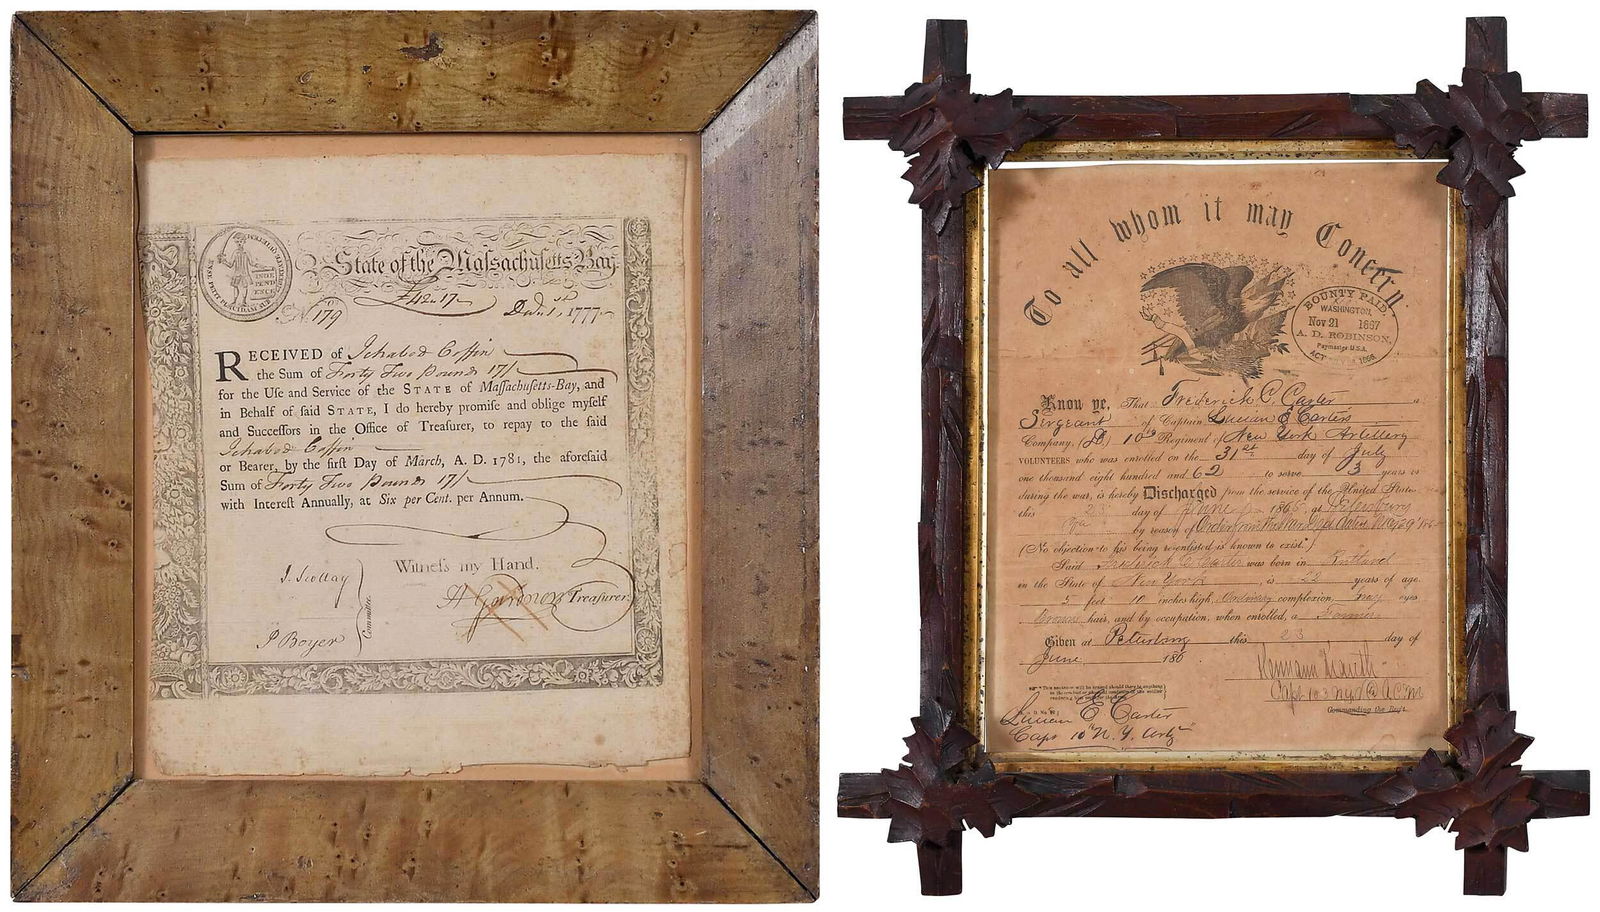 State of the Massachusetts-Bay.
INDE
PEND
ENCE
ENSE PETIT PLACIDAM SUB LIBERTATE QUIETEM
£42.17
No. 179
1, 1777
RECEIVED of Ichabod Coffin
the Sum of Forty Two Pounds 17/
for the Uſe and Service of the STATE of Maſſachuſetts-Bay, and
in Behalf of ſaid STATE, I do hereby promiſe and oblige myſelf
and Succeſſors in the Office of Treaſurer, to repay to the ſaid
Ichabod Coffin
or Bearer, by the firſt Day of March, A. D. 1781, the aforeſaid
Sum of Forty Two Pounds 17/
with Intereſt Annually, at Six per Cent. per Annum.
Witneſs my Hand,
J. Scollay
H Gardner Treaſurer.
Committee
P Boyer
To all whom it may Concern
BOUNTY PAID,
WASHINGTON,
Nov 21 1867
A. D. ROBINSON,
Paymaster U.S.A.
ACT 1866
Know ye, That Frederick C Carter a
Sergeant of Captain Lucian E Carters
Company, (D) 10th Regiment of New York Artillery
VOLUNTEERS who was enrolled on the 31st day of July
one thousand eight hundred and 62 to serve 3 years or
during the war, is hereby Discharged from the service of the United States
this 23 day of June 1865, at Petersburg
Va by reason of
(No objection to his being re-enlisted is known to exist.*)
Said Frederick C Carter was born in Rutland
in the State of New York, is 22 years of age,
5 feet 10 inches high, Ordinary complexion, eyes,
hair, and by occupation, when enrolled, a Farmer
Given at Petersburg this 23 day of
June 186
Commanding the Reg't.
Lucian E Carter
Capt 10" N. Y. Arty